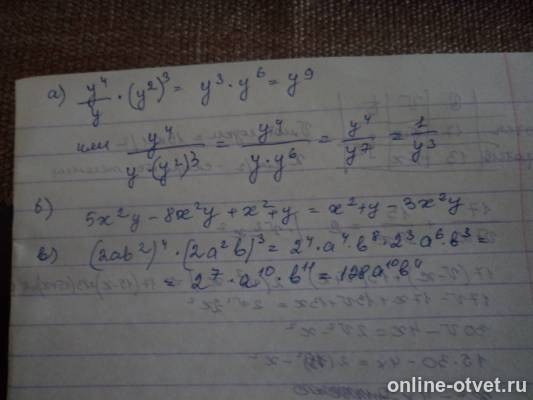 а) y⁴/y · (y²)³ = y³ · y⁶ = y⁹
или y⁴/(y·(y²)³) = y⁴/(y·y⁶) = y⁴/y⁷ = 1/y³
б) 5x²y − 8x²y + x² + y = x² + y − 3x²y
в) (2ab²)⁴ · (2a²b)³ = 2⁴·a⁴·b⁸·2³·a⁶·b³ =
= 2⁷·a¹⁰·b¹¹ = 128a¹⁰b⁴
online-otvet.ru